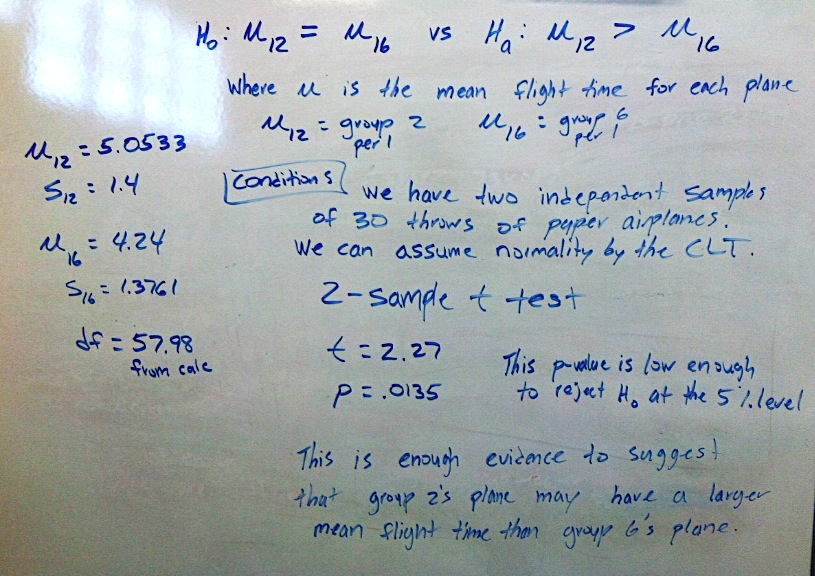 H₀: μ₁₂ = μ₁₆ vs Hₐ: μ₁₂ > μ₁₆
Where μ is the mean flight time for each plane
μ₁₂ = group 2 per 1 μ₁₆ = group 6 per 1
μ₁₂ = 5.0533
S₁₂ = 1.4
μ₁₆ = 4.24
S₁₆ = 1.3761
df = 57.98
from calc
Conditions We have two independent samples
of 30 throws of paper airplanes.
We can assume normality by the CLT.
2-sample t test
t = 2.27
p = .0135
This p-value is low enough
to reject H₀ at the 5% level
This is enough evidence to suggest
that group 2's plane may have a larger
mean flight time than group 6's plane.